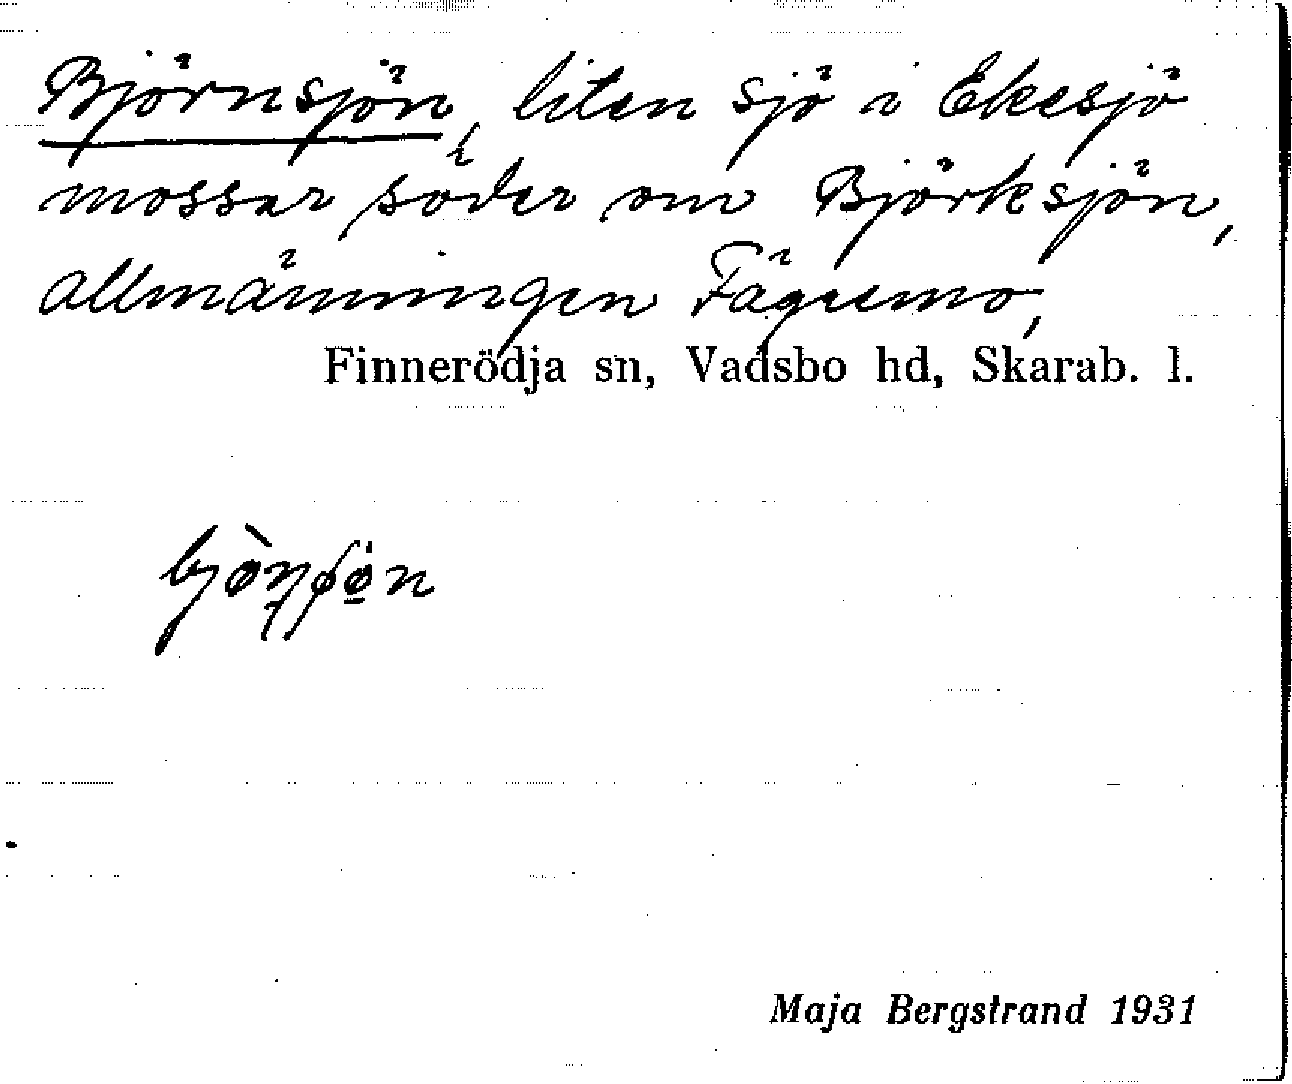 Björnsjön, liten sjö i Ekesjö
mossar söder om Björksjön,
allmänningen Fägremo,
Finnerödja sn, Vadsbo hd, Skarab. l.
Maja Bergstrand 1931